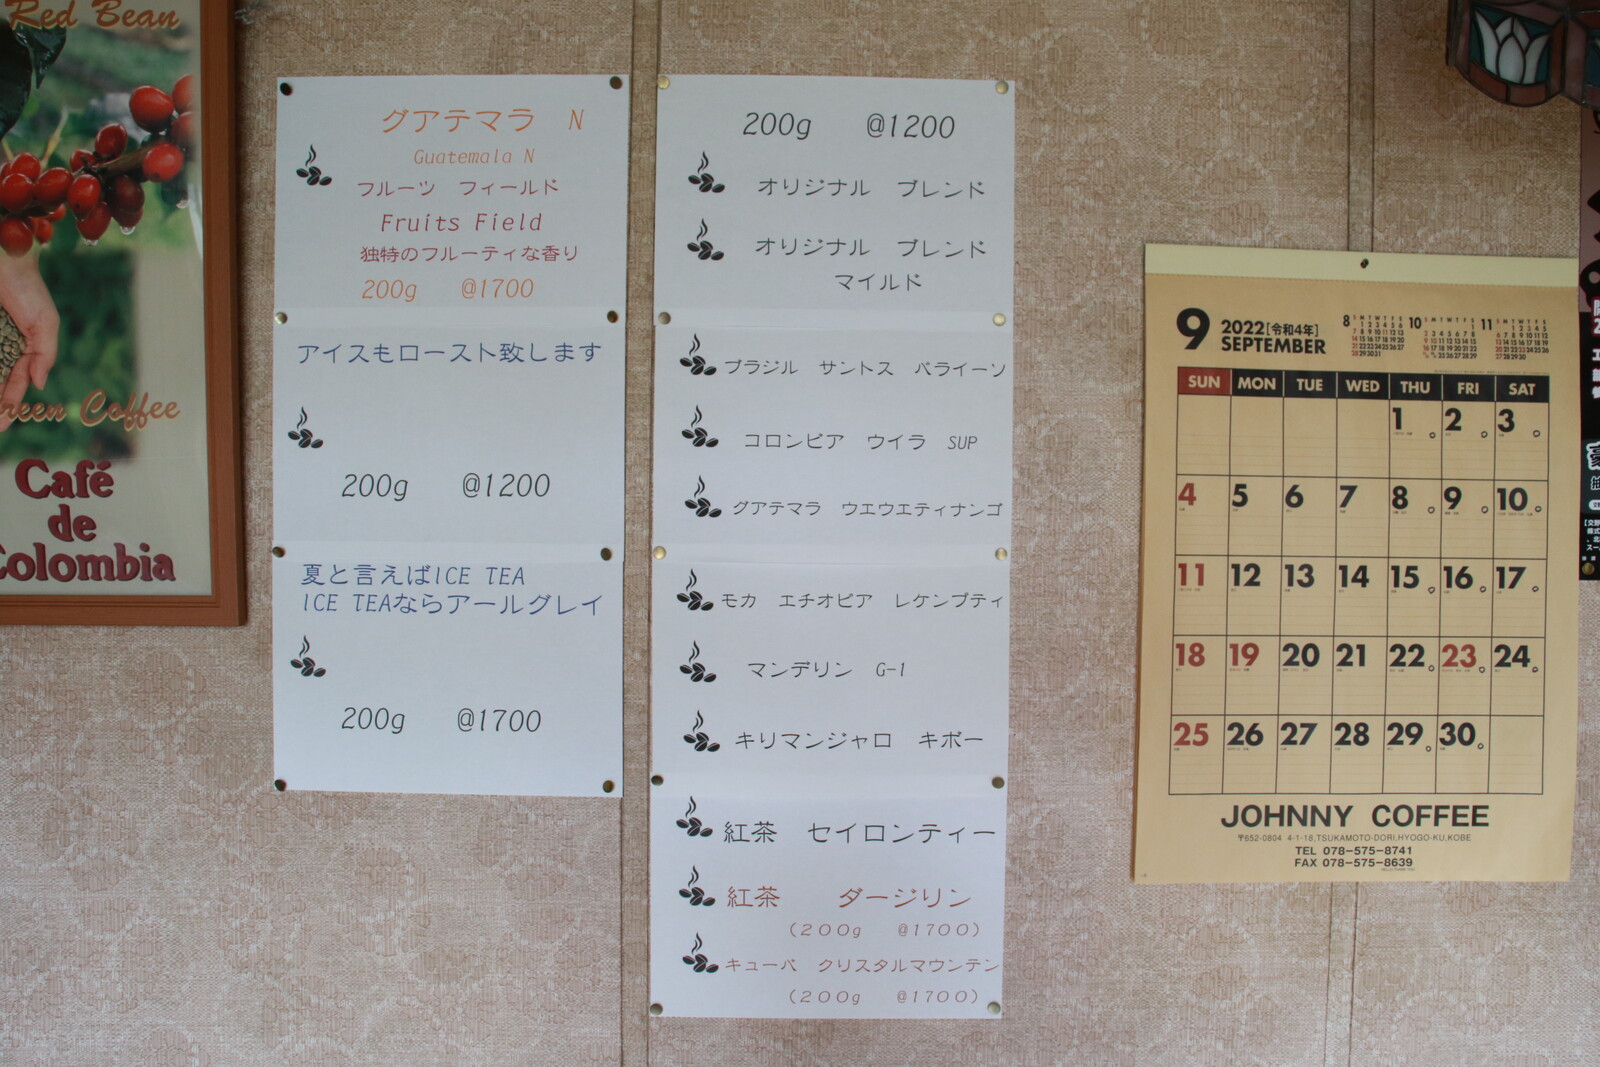 Red Bean
Green Coffee
Café
de
Colombia
グアテマラ N
Guatemala N
フルーツ フィールド
Fruits Field
独特のフルーティな香り
200g @1700
アイスもロースト致します
200g @1200
夏と言えばICE TEA
ICE TEAならアールグレイ
200g @1700
200g @1200
オリジナル ブレンド
オリジナル ブレンド
マイルド
ブラジル サントス ベライーゾ
コロンビア ウイラ SUP
グアテマラ ウエウエティナンゴ
モカ エチオピア レケンプティ
マンデリン G-1
キリマンジャロ キボー
紅茶 セイロンティー
紅茶 ダージリン
(200g @1700)
キューバ クリスタルマウンテン
(200g @1700)
9 2022[令和4年]
SEPTEMBER
8 10 11
SUN MON TUE WED THU FRI SAT
1 2 3
4 5 6 7 8 9 10
11 12 13 14 15 16 17
18 19 20 21 22 23 24
25 26 27 28 29 30
JOHNNY COFFEE
〒652-0804 4-1-18,TSUKAMOTO-DORI,HYOGO-KU,KOBE
TEL 078-575-8741
FAX 078-575-8639